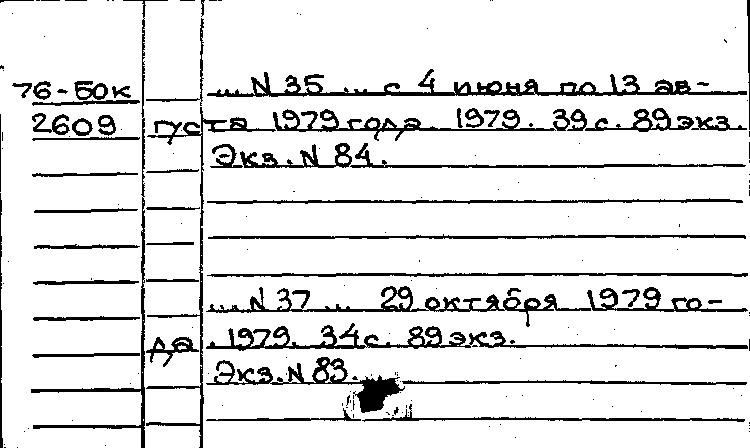 76-50к ... N 35 ... с 4 июня по 13 ав-
2609 густа 1979 года. 1979. 39 с. 89 экз.
Экз. N 84.
... N 37 ... 29 октября 1979 го-
да. 1979. 34 с. 89 экз.
Экз. N 83.